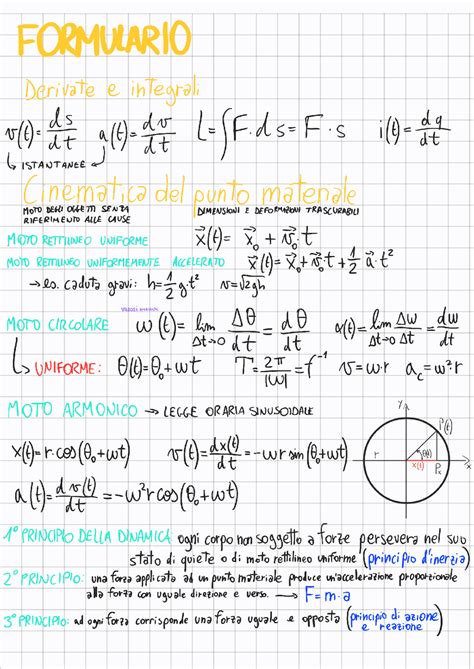 FORMULARIO
Derivate e integrali
v(t) = ds/dt a(t) = dv/dt L = ∫F·ds = F·s i(t) = dq/dt
↳ ISTANTANEE ↲
Cinematica del punto materiale
MOTO DEGLI OGGETTI SENZA RIFERIMENTO ALLE CAUSE
DIMENSIONI E DEFORMAZIONI TRASCURABILI
MOTO RETTILINEO UNIFORME x⃗(t) = x⃗₀ + v⃗₀·t
MOTO RETTILINEO UNIFORMEMENTE ACCELERATO x⃗(t) = x⃗₀ + v⃗₀t + 1/2 a⃗·t²
→ es. caduta gravi: h = 1/2 g·t² v = √2gh
MOTO CIRCOLARE ω(t) = lim Δt→0 Δθ/dt = dθ/dt α(t) = lim Δt→0 Δw/dt = dw/dt
↳ UNIFORME: θ(t) = θ₀ + wt T = 2π/|W| = f⁻¹ v = w·r a_c = w²·r
MOTO ARMONICO → LEGGE ORARIA SINUSOIDALE
x(t) = r·cos(θ₀+wt) v(t) = dx(t)/dt = -wr sin(θ₀+wt)
a(t) = dv(t)/dt = -w²r cos(θ₀+wt)
y P(t) r θ(t) x(t) Px x
1° PRINCIPIO DELLA DINAMICA ogni corpo non soggetto a forze persevera nel suo
stato di quiete o di moto rettilineo uniforme (principio d'inerzia)
2° PRINCIPIO: una forza applicata ad un punto materiale produce un'accelerazione proporzionale
alla forza con uguale direzione e verso. → F = m·a
3° PRINCIPIO: ad ogni forza corrisponde una forza uguale e opposta (principio di azione
e reazione)